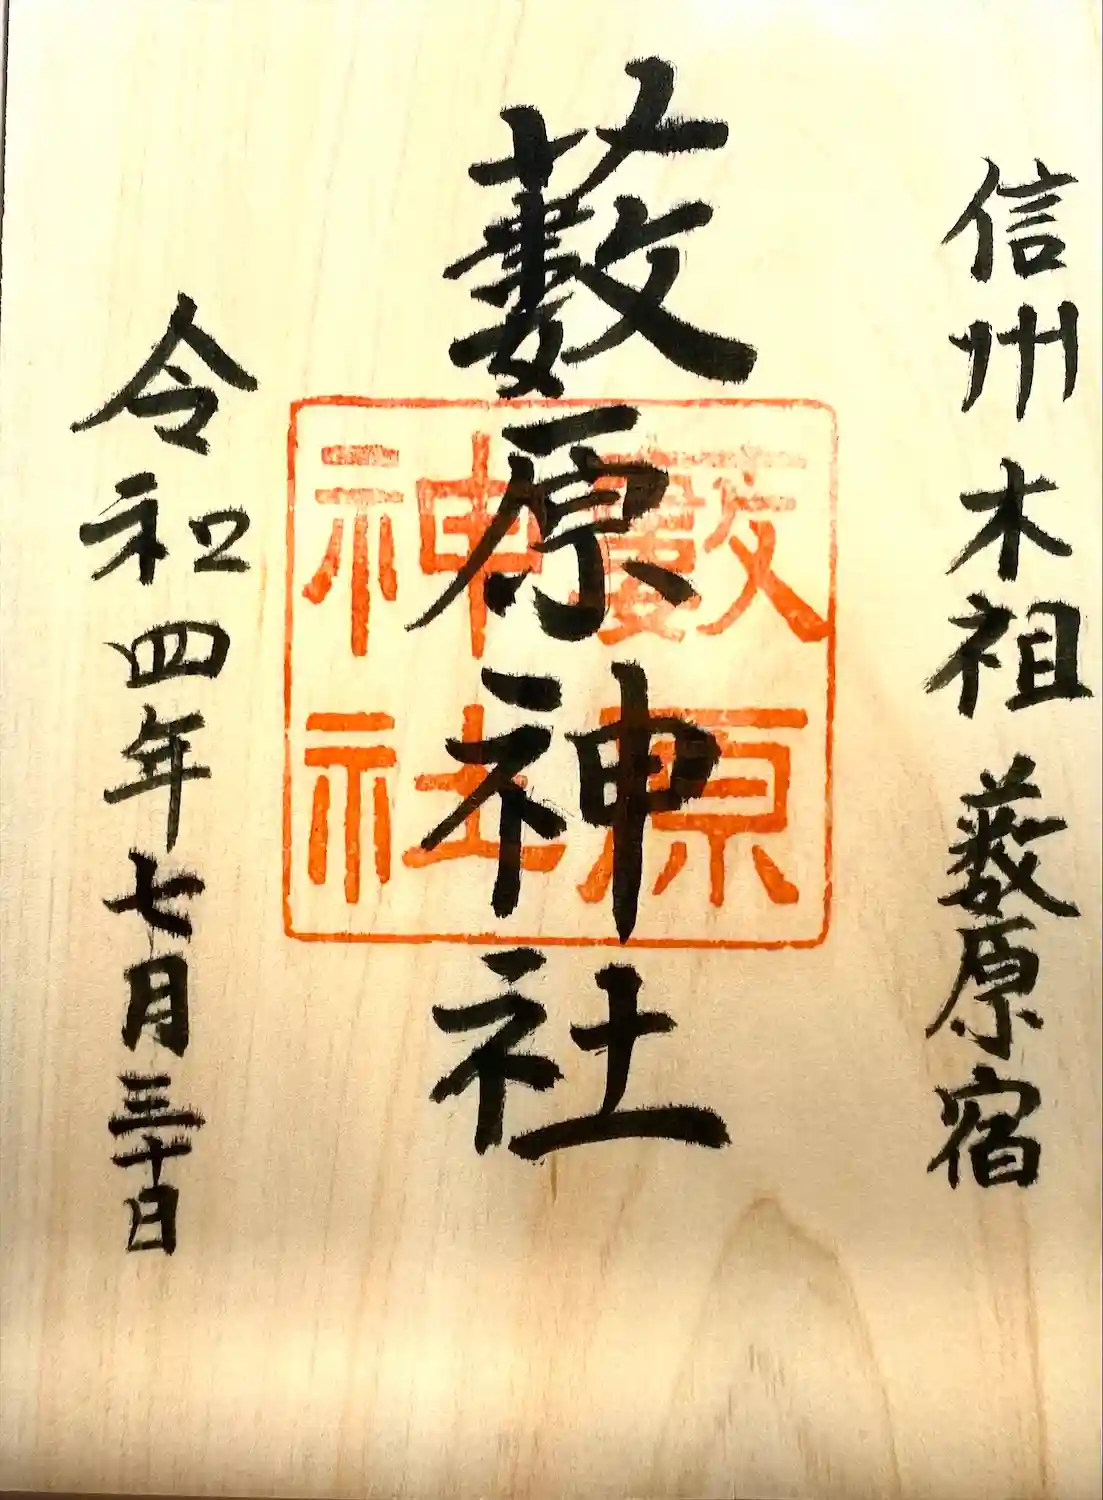 信州木祖 藪原宿
藪原神社
藪原
神社
令和四年七月三十日